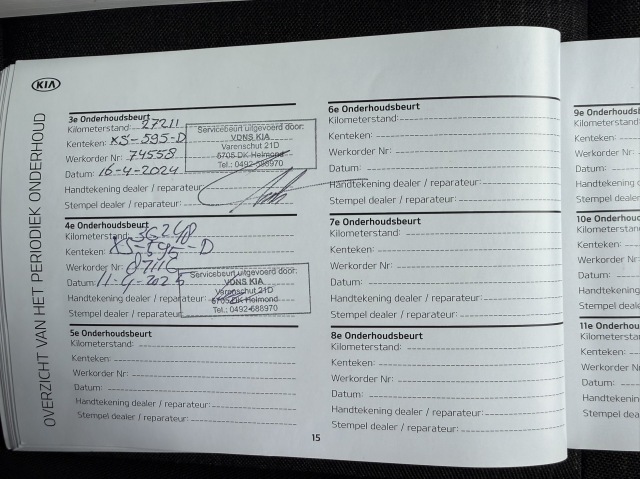 KIA
OVERZICHT VAN HET PERIODIEK ONDERHOUD
3e Onderhoudsbeurt
Kilometerstand: 27211
Kenteken: XS-595-D
Werkorder Nr: 74558
Datum: 16-4-2024
Handtekening dealer / reparateur:
Stempel dealer / reparateur:
Servicebeurt uitgevoerd door:
VONS KIA
Varenschut 21D
5705 DK Helmond
Tel.: 0492-588970
4e Onderhoudsbeurt
Kilometerstand: 36248
Kenteken: XS-595-D
Werkorder Nr:
Datum: 11-4-2025
Handtekening dealer / reparateur:
Stempel dealer / reparateur:
Servicebeurt uitgevoerd door:
VONS KIA
Varenschut 21D
5705 DK Helmond
Tel.: 0492-588970
5e Onderhoudsbeurt
Kilometerstand:
Kenteken:
Werkorder Nr:
Datum:
Handtekening dealer / reparateur:
Stempel dealer / reparateur:
6e Onderhoudsbeurt
Kilometerstand:
Kenteken:
Werkorder Nr:
Datum:
Handtekening dealer / reparateur:
Stempel dealer / reparateur:
7e Onderhoudsbeurt
Kilometerstand:
Kenteken:
Werkorder Nr:
Datum:
Handtekening dealer / reparateur:
Stempel dealer / reparateur:
8e Onderhoudsbeurt
Kilometerstand:
Kenteken:
Werkorder Nr:
Datum:
Handtekening dealer / reparateur:
Stempel dealer / reparateur:
15
9e Onderhoudsb
Kilometerstand
Kenteken:
Werkorder Nr:
Datum:
Handtekening
Stempel dealer
10e Onderhou
Kilometerstan
Kenteken:
Werkorder N
Datum:
Handtekenin
Stempel deale
11e Onderhou
Kilometersta
Kenteken:
Werkorder N
Datum:
Handtekenin
Stempel dea